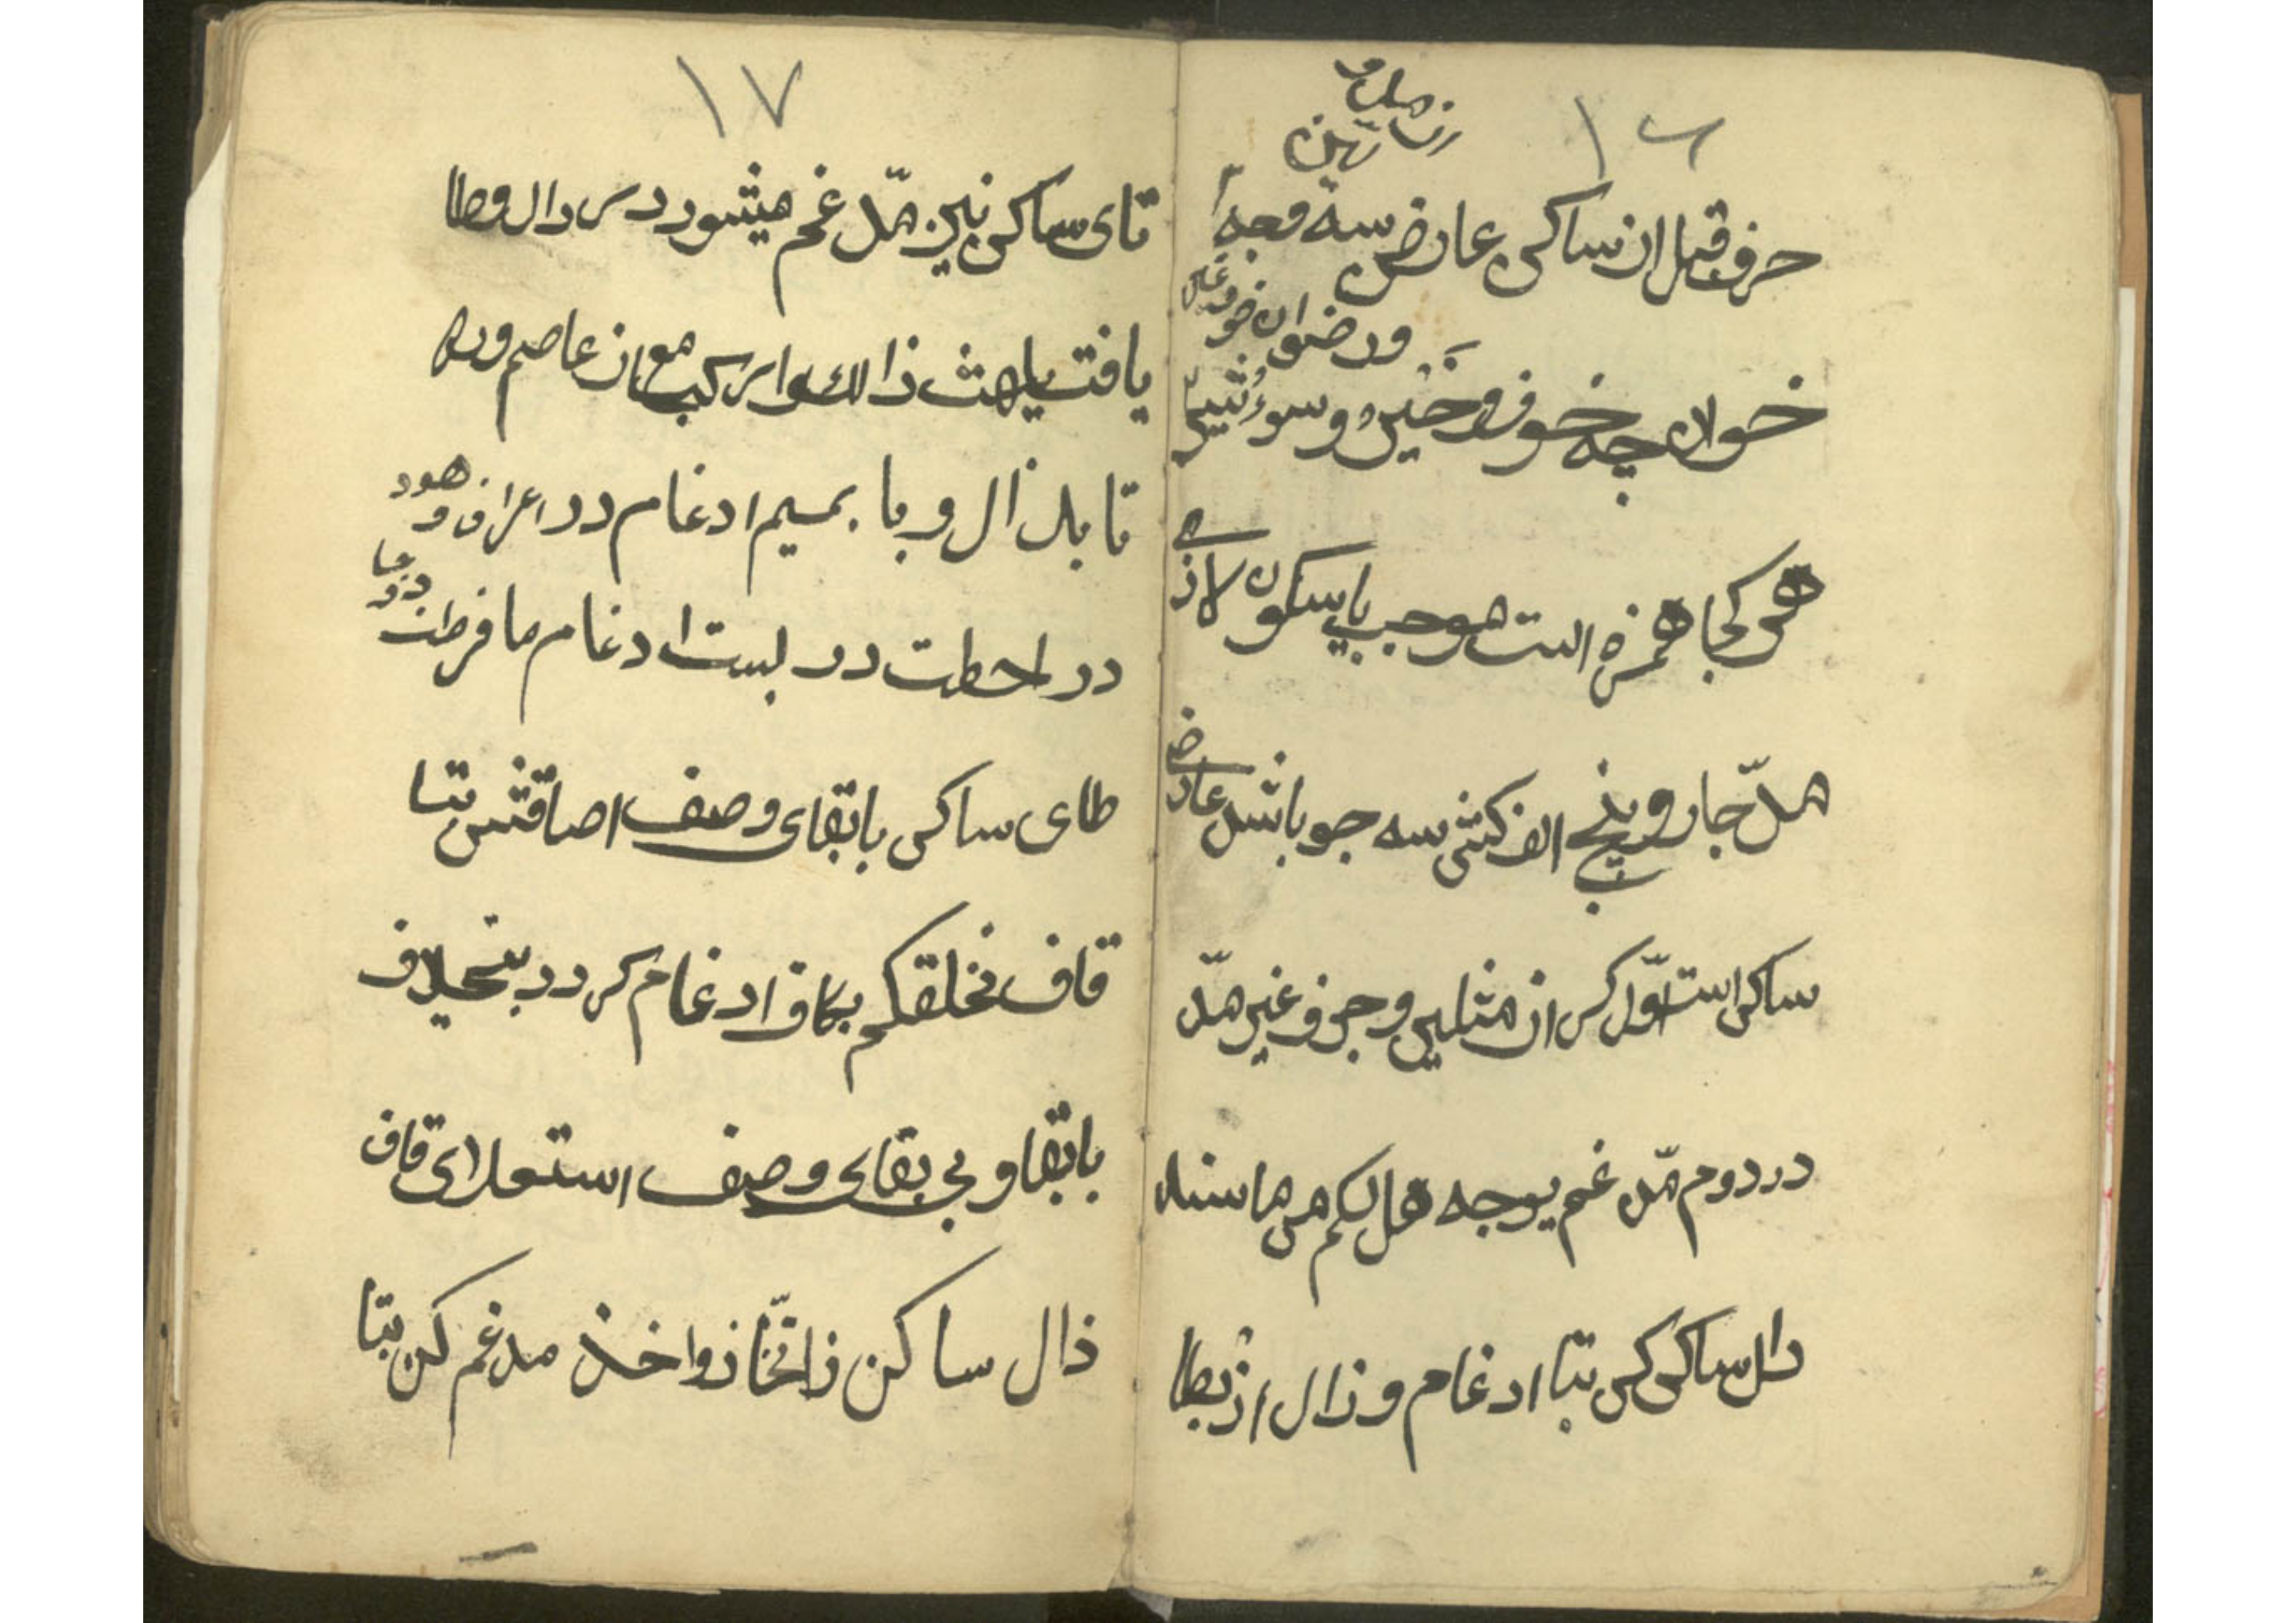 ١٦
حرف قبل از ساکن عارض سه وجه
ورضوان خوف
خوان چه خوف و خیر و سوء شیئ
هر کجا همزه است موجب یا سکون لازمی
مدّ چار و پنج الف کش سه چو باشد عارضی
ساکن است اوّل کر از مثلین و حرف غیر مدّ
در دوم مدغم یوجه هل لکم هر ما سند
دال ساکن کن بتا ادغام و ذال از بظا
١٧
تای ساکن نیز مدغم میشود در دال و طا
یافت یلهث ذالك وارکب مع از عاصم وره
تا بذال و با بمیم ادغام در اعراف و هود
در احطت در لبست ادغام ما فرطت
طای ساکن با بقای وصف اصاقتش بتا
قاف نخلقکم بکاف ادغام کردد بیخلاف
با بقا و بی بقای وصف استعلای قاف
ذال ساکن ز اتّخاذ و اخذ مدغم کن بتا